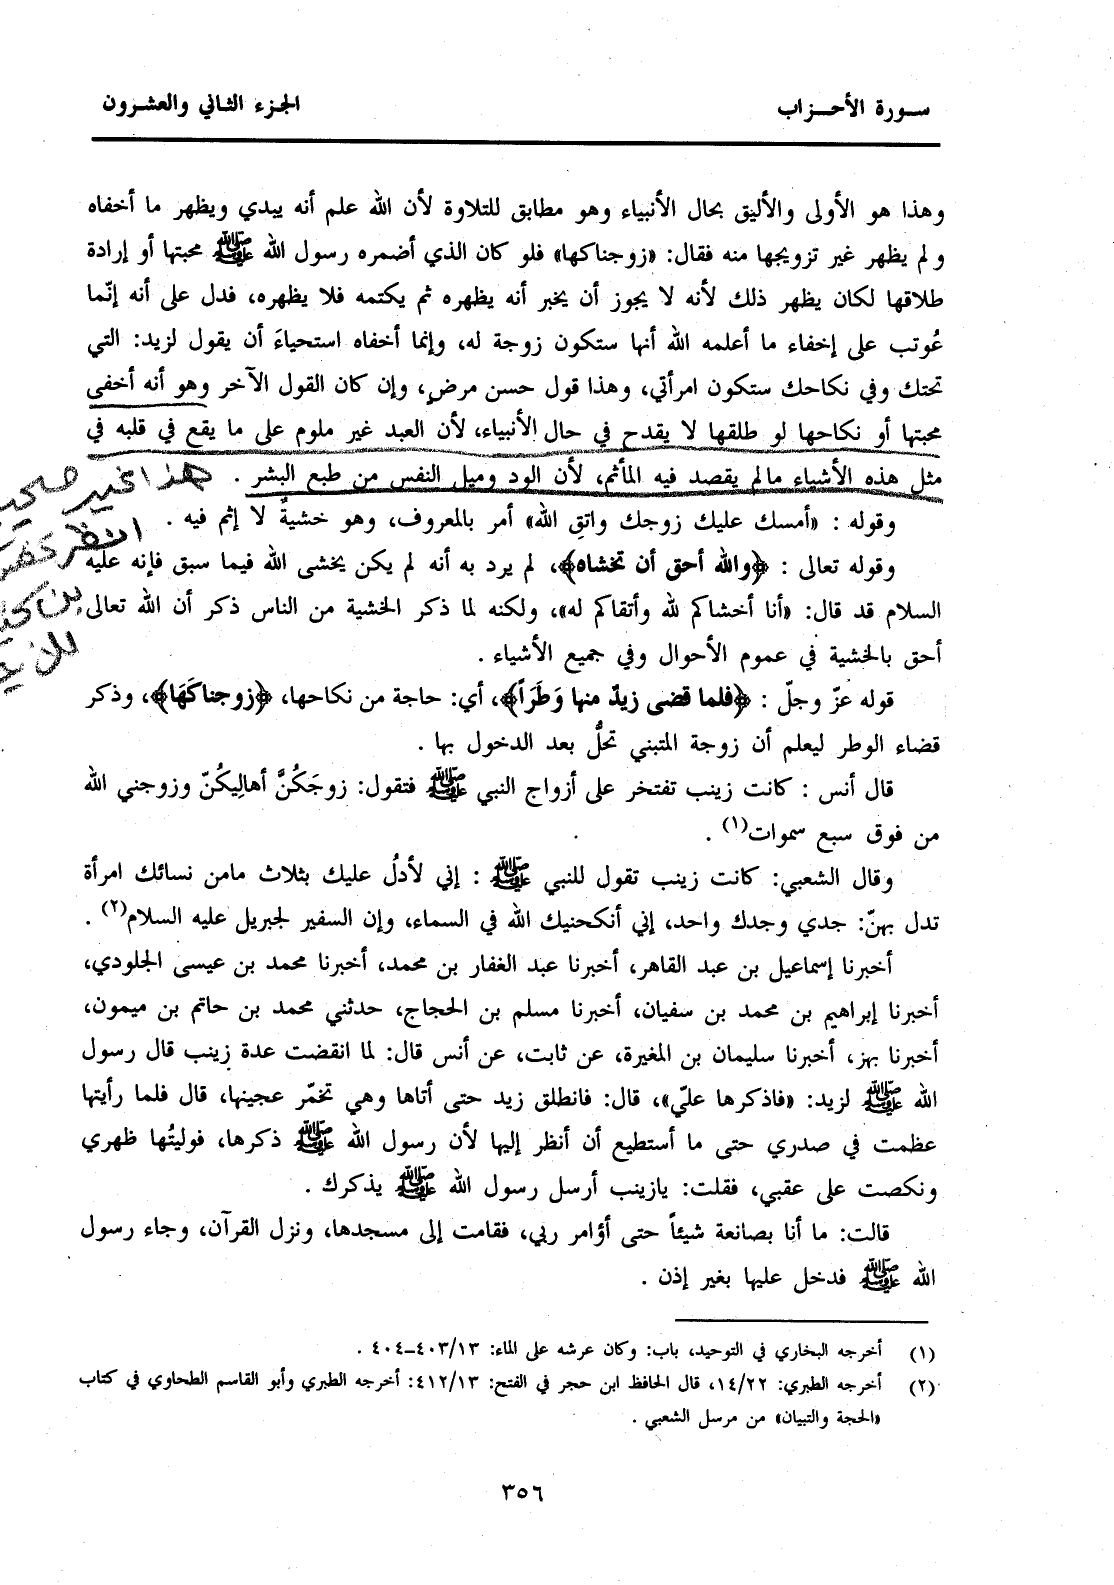 سورة الأحزاب
الجزء الثاني والعشرون
وهذا هو الأولى والأليق بحال الأنبياء وهو مطابق للتلاوة لأن الله علم أنه يبدي ويظهر ما أخفاه
ولم يظهر غير تزويجها منه فقال: «زوجناكها» فلو كان الذي أضمره رسول الله ﷺ محبتها أو إرادة
طلاقها لكان يظهر ذلك لأنه لا يجوز أن يخبر أنه يظهره ثم يكتمه فلا يظهره، فدل على أنه إنّما
عُوتب على إخفاء ما أعلمه الله أنها ستكون زوجة له، وإنما أخفاه استحياءً أن يقول لزيد: التي
تحتك وفي نكاحك ستكون امرأتي، وهذا قول حسن مرضٍ، وإن كان القول الآخر وهو أنه أخفى
محبتها أو نكاحها لو طلقها لا يقدح في حال الأنبياء، لأن العبد غير ملوم على ما يقع في قلبه في
مثل هذه الأشياء مالم يقصد فيه المأثم، لأن الود وميل النفس من طبع البشر .
وقوله : «أمسك عليك زوجك واتقِ الله» أمر بالمعروف، وهو خشيةٌ لا إثم فيه .
وقوله تعالى : ﴿والله أحق أن تخشاه﴾، لم يرد به أنه لم يكن يخشى الله فيما سبق فإنه عليه
السلام قد قال: «أنا أخشاكم لله وأتقاكم له»، ولكنه لما ذكر الخشية من الناس ذكر أن الله تعالى
أحق بالخشية في عموم الأحوال وفي جميع الأشياء .
قوله عزّ وجلّ : ﴿فلما قضى زيدٌ منها وَطَرَاً﴾، أي: حاجة من نكاحها، ﴿زوجناكَهَا﴾، وذكر
قضاء الوطر ليعلم أن زوجة المتبني تحلُّ بعد الدخول بها .
قال أنس : كانت زينب تفتخر على أزواج النبي ﷺ فتقول: زوجَكُنَّ أهالِيكُنّ وزوجني الله
من فوق سبع سموات(١) .
وقال الشعبي: كانت زينب تقول للنبي ﷺ : إني لأدلُ عليك بثلاث مامن نسائك امرأة
تدل بهنّ: جدي وجدك واحد، إني أنكحنيك الله في السماء، وإن السفير لجبريل عليه السلام(٢) .
أخبرنا إسماعيل بن عبد القاهر، أخبرنا عبد الغفار بن محمد، أخبرنا محمد بن عيسى الجلودي،
أخبرنا إبراهيم بن محمد بن سفيان، أخبرنا مسلم بن الحجاج، حدثني محمد بن حاتم بن ميمون،
أخبرنا بهز، أخبرنا سليمان بن المغيرة، عن ثابت، عن أنس قال: لما انقضت عدة زينب قال رسول
الله ﷺ لزيد: «فاذكرها عليّ»، قال: فانطلق زيد حتى أتاها وهي تخمّر عجينها، قال فلما رأيتها
عظمت في صدري حتى ما أستطيع أن أنظر إليها لأن رسول الله ﷺ ذكرها، فوليتُها ظهري
ونكصت على عقبي، فقلت: يازينب أرسل رسول الله ﷺ يذكرك .
قالت: ما أنا بصانعة شيئاً حتى أؤامر ربي، فقامت إلى مسجدها، ونزل القرآن، وجاء رسول
الله ﷺ فدخل عليها بغير إذن .
(١) أخرجه البخاري في التوحيد، باب: وكان عرشه على الماء: ٤٠٣/١٣-٤٠٤ .
(٢) أخرجه الطبري: ١٤/٢٢، قال الحافظ ابن حجر في الفتح: ٤١٢/١٣: أخرجه الطبري وأبو القاسم الطحاوي في كتاب
«الحجة والتبيان» من مرسل الشعبي .
٣٥٦
هذا
انظر
بن